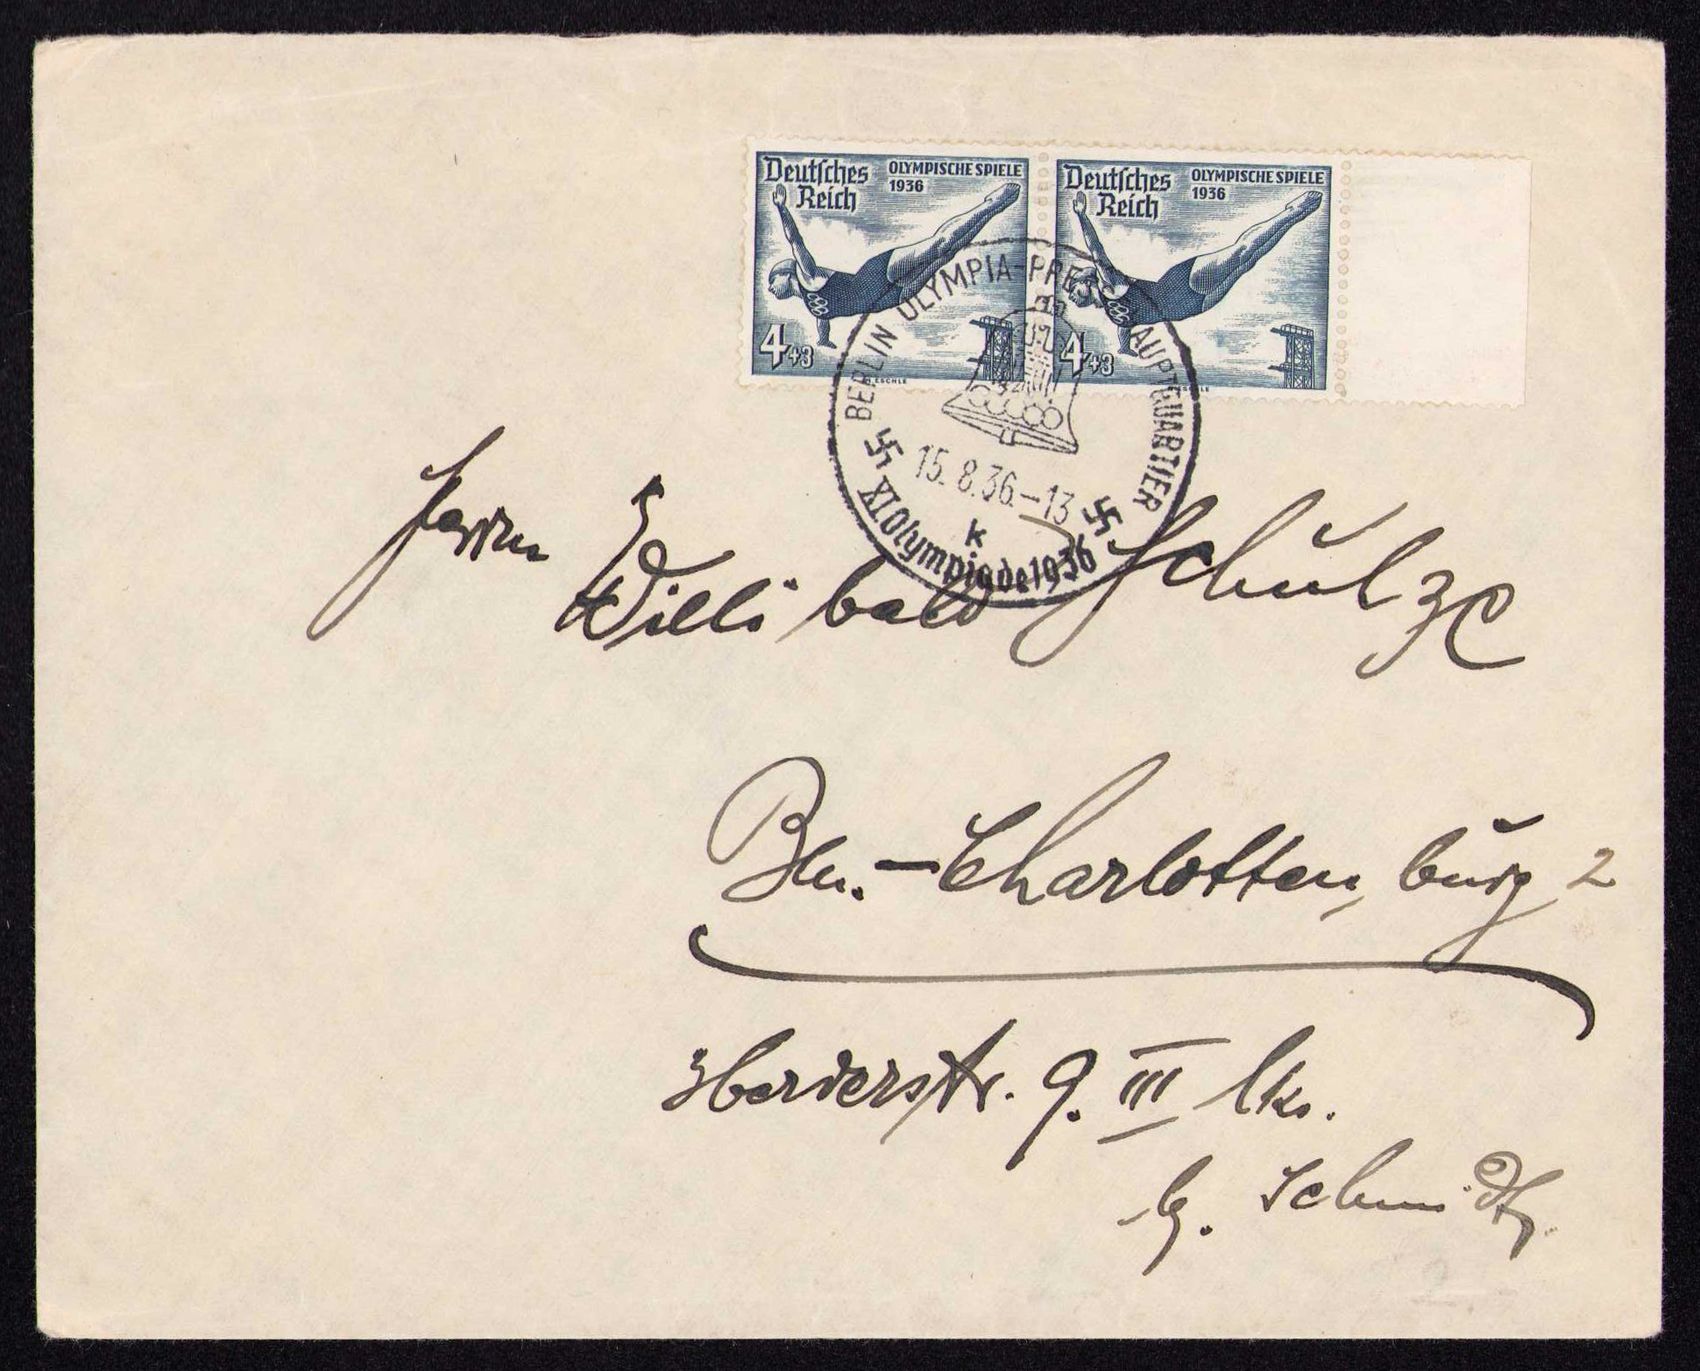 Deutsches Reich OLYMPISCHE SPIELE 1936
4+3
ESCHLE
Deutsches Reich OLYMPISCHE SPIELE 1936
4+3
BERLIN OLYMPIA-PRESSEHAUPTQUARTIER
15.8.36.–13
k
XI Olympiade 1936
Herrn
Willibald Schulze
Bln.–Charlottenburg 2
Herderstr. 9. III lks.
b. Schmidt